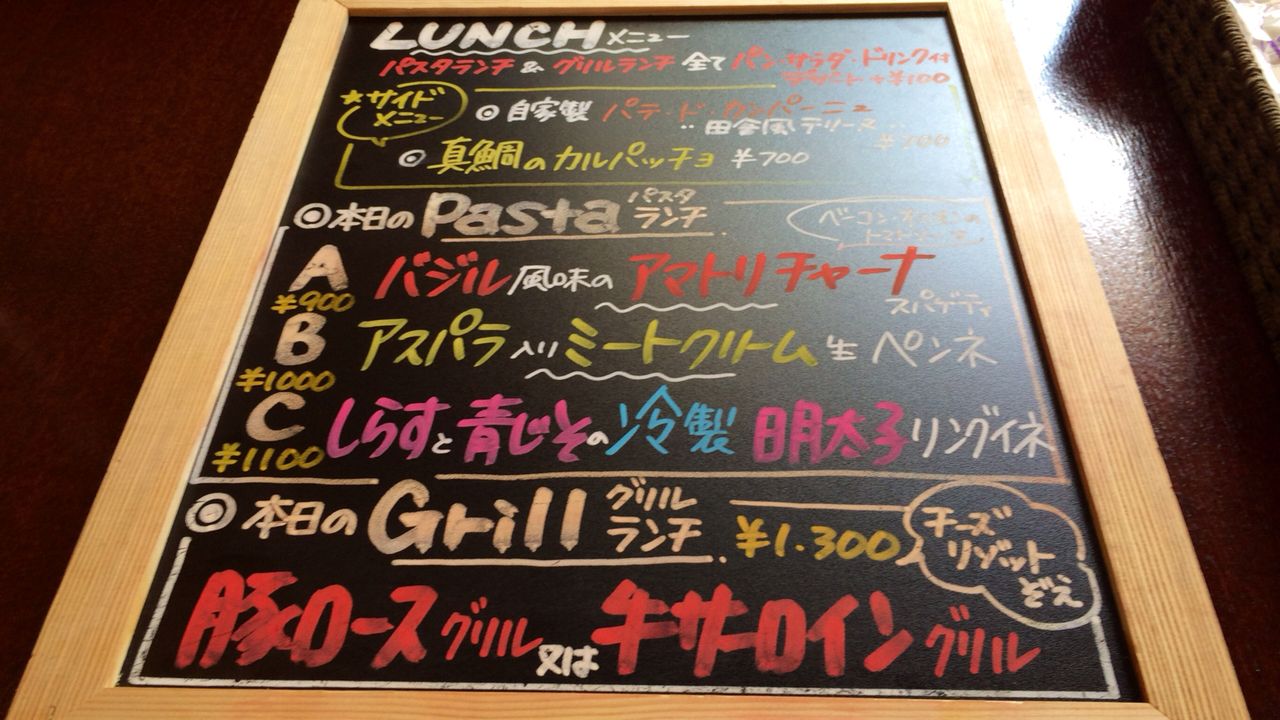 LUNCH メニュー
パスタランチ & グリルランチ 全て パン・サラダ・ドリンク付
デザート +¥100
★サイド
メニュー
◎ 自家製 パテ・ド・カンパーニュ
"田舎風テリーヌ"
◎ 真鯛のカルパッチョ ¥700
◎本日の Pasta パスタ
ランチ
ベーコン・
トマトソース
A バジル風味の アマトリチャーナ
¥900
スパゲティ
B アスパラ入りミートクリーム 生 ペンネ
¥1000
C しらすと青じその冷製 明太子リングイネ
¥1100
◎ 本日の Grill グリル
ランチ ¥1.300
チーズ
リゾット
ぞえ
豚ロースグリル 又は 牛サーロイングリル